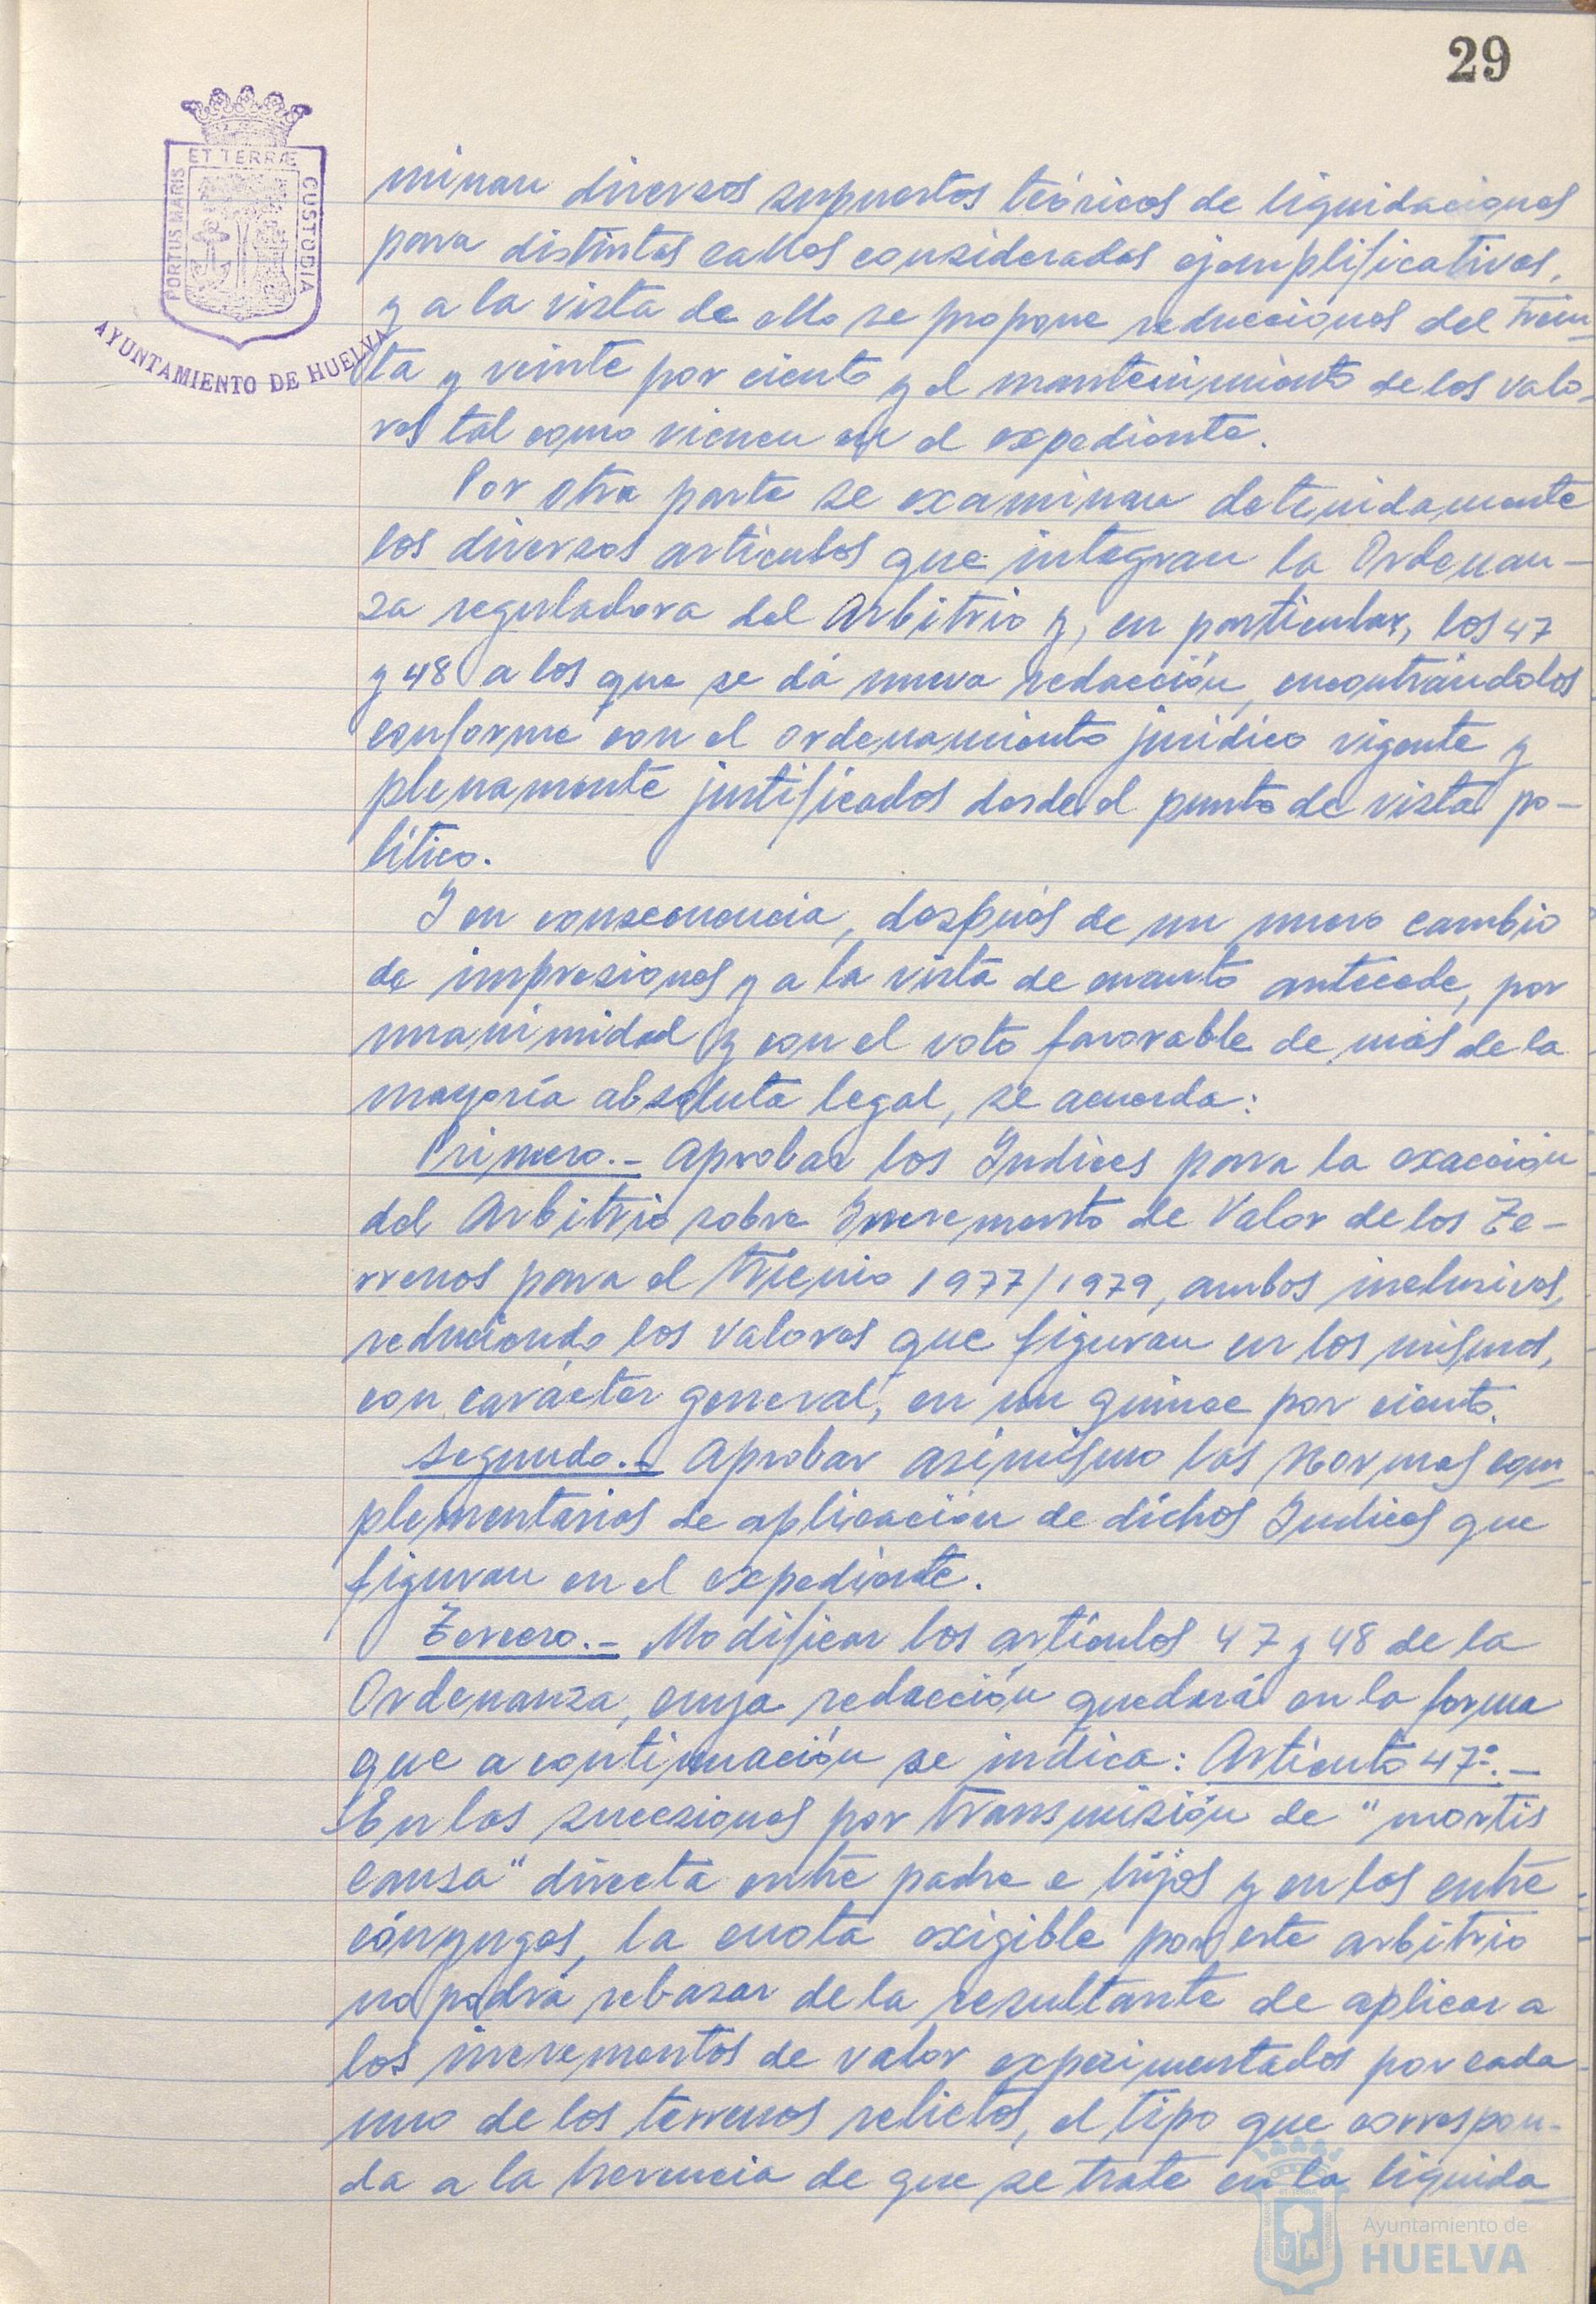 29
ET TERRÆ
PORTUS MARIS
CUSTODIA
AYUNTAMIENTO DE HUELVA
minan diversos supuestos teóricos de liquidaciones
para distintas calles consideradas ejemplificativas,
y a la vista de ello se propone reducciones del trein
ta y veinte por ciento y el mantenimiento de los valo-
res tal como vienen en el expediente.
Por otra parte se examinan detenidamente
los diversos artículos que integran la Ordenan-
za reguladora del Arbitrio y, en particular, los 47
y 48 a los que se dá nueva redacción, encontrándolos
conforme con el ordenamiento jurídico vigente y
plenamente justificados desde el punto de vista po-
lítico.
Y en consecuencia, después de un nuevo cambio
de impresiones y a la vista de cuanto antecede, por
unanimidad y con el voto favorable de más de la
mayoría absoluta legal, se acuerda:
Primero.- Aprobar los Indices para la exacción
del Arbitrio sobre Incremento de Valor de los Te-
rrenos para el trienio 1977/1979, ambos inclusives,
reduciendo los valores que figuran en los mismos,
con carácter general, en un quince por ciento.
Segundo.- Aprobar asimismo las Normas com
plementarias de aplicación de dichos Indices que
figuran en el expediente.
Tercero.- Modificar los artículos 47 y 48 de la
Ordenanza, cuya redacción quedará en la forma
que a continuación se indica: Artículo 47º.-
"En las sucesiones por transmisión de "mortis
causa" directa entre padre e hijos y en las entre
cónyuges, la cuota exigible por este arbitrio
no podrá rebasar de la resultante de aplicar a
los incrementos de valor experimentados por cada
uno de los terrenos relictos, el tipo que correspon-
da a la herencia de que se trate en la liquida
Ayuntamiento de
HUELVA